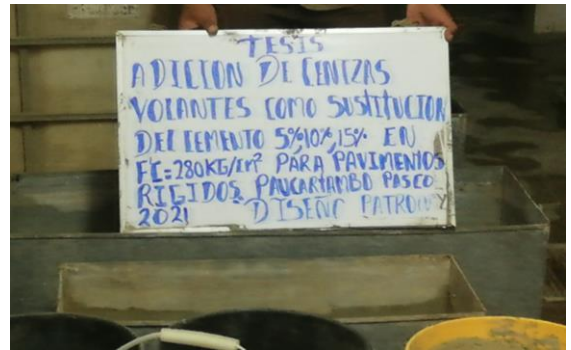 TESIS
ADICION DE CENIZAS
VOLANTES COMO SUSTITUCION
DEL CEMENTO 5%,10%,15% EN
FC=280KG/cm² PARA PAVIMENTOS
RIGIDOS, PAUCARTAMBO PASCO
2021 DISEÑO PATRON